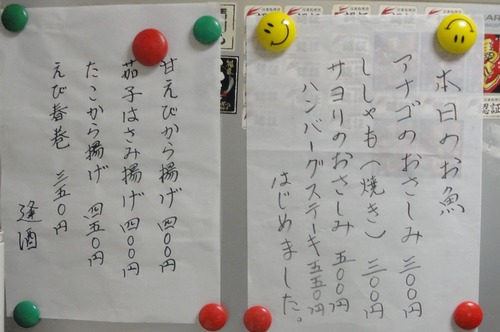 本日のお魚
アナゴのおさしみ 三〇〇円
ししゃも(焼き) 三〇〇円
サヨリのおさしみ 五〇〇円
ハンバーグステーキ 五五〇円
はじめました。
甘えびから揚げ 四〇〇円
茄子はさみ揚げ 四〇〇円
たこから揚げ 四五〇円
えび春巻 三五〇円
逢酒
認証